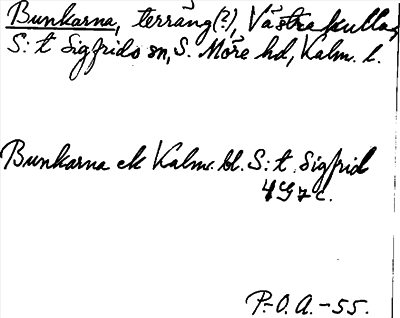 Bunkarna, terräng(?), Västrakulla,
S:t Sigfrids sn, S. Möre hd, Kalm. l.
Bunkarna ek Kalm. bl. S:t Sigfrid
4G7c.
P.-O. A. -55.